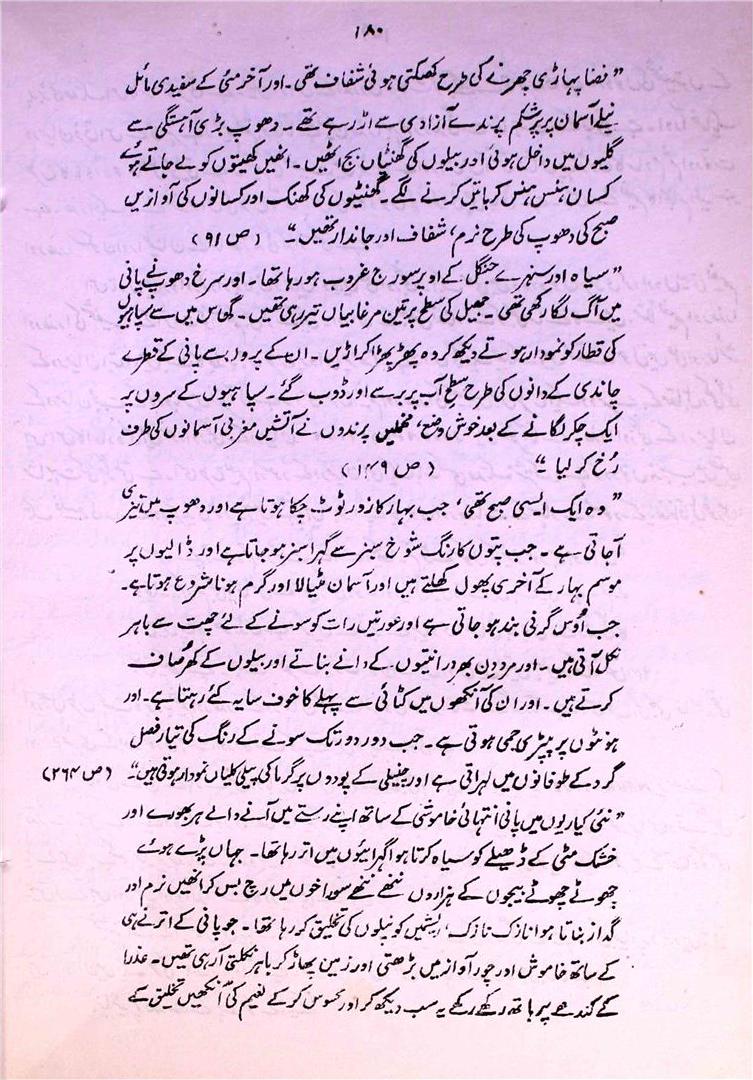 ۱۸۰
” فضا پہاڑی جھرنے کی طرح کھنکتی ہوئی شفاف تھی۔ اور آخر مئی کے سفیدی مائل
نیلے آسمان پر پر شکم پرندے آزادی سے اڑ رہے تھے۔ دھوپ بڑی آہستگی سے
گلیوں میں داخل ہوئی اور بیلوں کی گھنٹیاں بج اٹھیں۔ انھیں کھیتوں کو لے جاتے ہوئے
کسان ہنس ہنس کر باتیں کرنے لگے۔ گھنٹیوں کی کھنک اور کسانوں کی آوازیں
صبح کی دھوپ کی طرح نرم، شفاف اور جاندار تھیں۔“ (ص ۹۱)
” سیاہ اور سنہرے جنگل کے اوپر سورج غروب ہو رہا تھا۔ اور سرخ دھوپ نے پانی
میں آگ لگا رکھی تھی۔ جھیل کی سطح پر تین مرغابیاں تیر رہی تھیں۔ گھاس میں سے سپاہیوں
کی قطار کو نمودار ہوتے دیکھ کر وہ پھڑپھڑا کر اڑیں۔ ان کے پروں سے پانی کے قطرے
چاندی کے دانوں کی طرح سطح آب پر برسے اور ڈوب گئے۔ سپاہیوں کے سروں پر
ایک چکر لگانے کے بعد خوش وضع، مخملیں پرندوں نے آتشیں مغربی آسمانوں کی طرف
رخ کر لیا ۔“ (ص ۱۴۹)
” وہ ایک ایسی صبح تھی، جب بہار کا زور ٹوٹ چکا ہوتا ہے اور دھوپ میں تیزی
آ جاتی ہے۔ جب پتوں کا رنگ شوخ سبز سے گہرا سبز ہو جاتا ہے اور ڈالیوں پر
موسم بہار کے آخری پھول کھلتے ہیں اور آسمان مٹیالا اور گرم ہونا شروع ہوتا ہے۔
جب اوس گرنی بند ہو جاتی ہے اور عورتیں رات کو سونے کے لئے چھت سے باہر
نکل آتی ہیں۔ اور مرد دن بھر درانتیوں کے دانے بناتے اور بیلوں کے کھر صاف
کرتے ہیں۔ اور ان کی آنکھوں میں کٹائی سے پہلے کا خوف سایہ کئے رہتا ہے۔ اور
ہونٹوں پر پپڑی جمی ہوتی ہے۔ جب دور دور تک سونے کے رنگ کی تیار فصل
گرد کے طوفانوں میں لہراتی ہے اور چنبیلی کے پودوں پر گرما کی پیلی کلیاں نمودار ہوتی ہیں۔“ (ص ۲۶۴)
” نئی کیاریوں میں پانی انتہائی خاموشی کے ساتھ اپنے رستے میں آنے والے ہر بھورے اور
خشک مٹی کے ڈھیلے کو سیاہ کرتا ہوا گہرائیوں میں اتر رہا تھا۔ جہاں پڑے ہوئے
چھوٹے چھوٹے بیجوں کے ہزاروں ننھے ننھے سوراخوں میں رچ بس کر انھیں نرم اور
گداز بناتا ہوا نازک نازک، ریشمیں کونپلوں کی تخلیق کر رہا تھا۔ جو پانی کے اترنے ہی
کے ساتھ خاموش اور چور آواز میں بڑھتی اور زمین پھاڑ کر باہر نکلتی آ رہی تھیں۔ عذرا
کے کندھے پر ہاتھ رکھے رکھے یہ سب دیکھ کر اور محسوس کر کے نعیم کی آنکھیں تخلیق کے